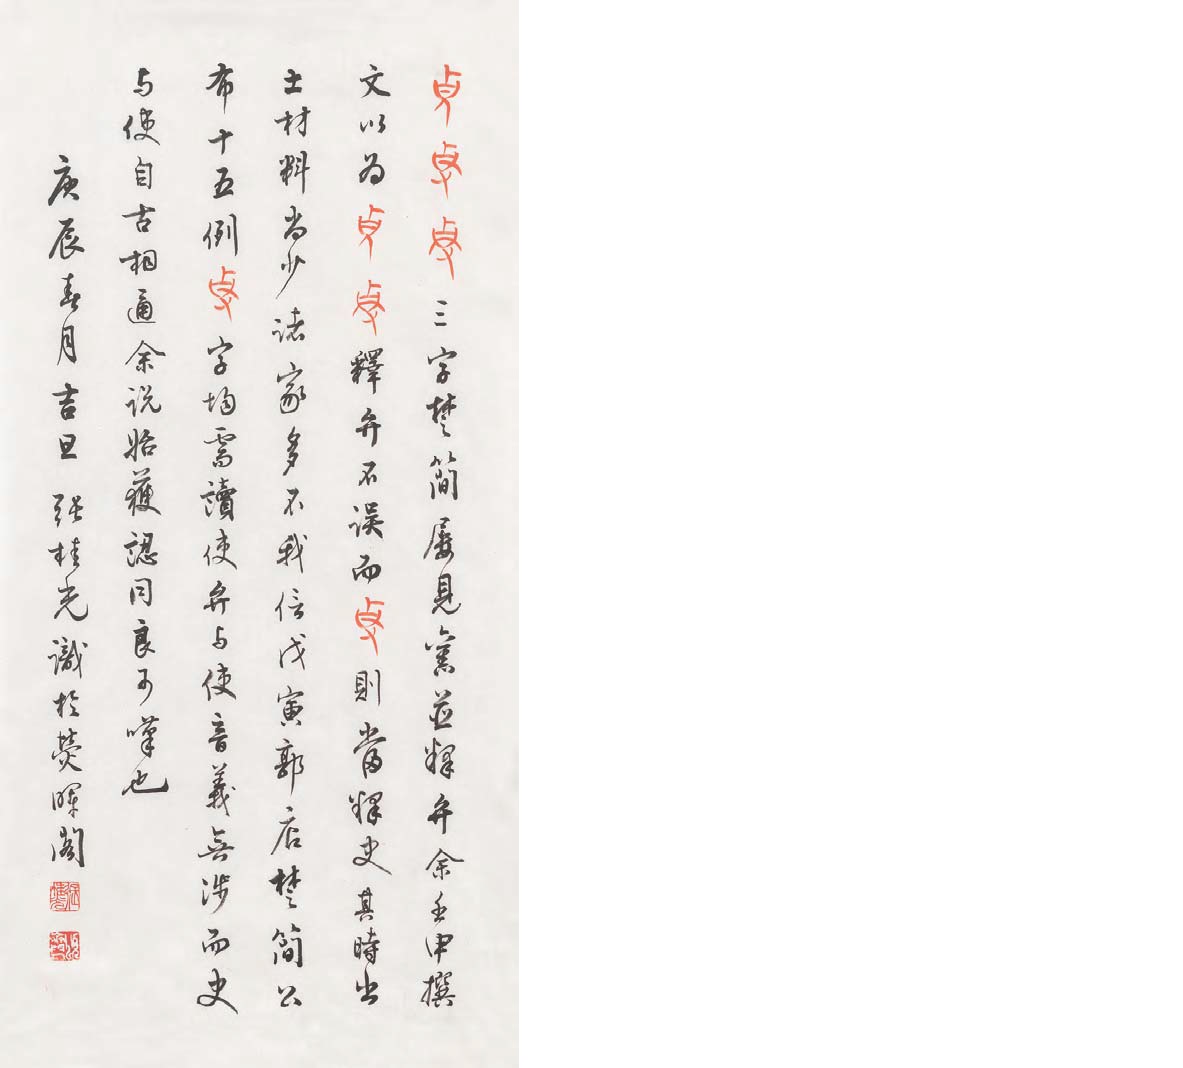 三字楚簡屡見舊並釋弁余壬申撰
文以為釋弁不误而則當釋史其時出
土材料尚少诸家多不我信戊寅郭店楚簡公
布十五例字均需讀使弁与使音義無涉而史
与使自古相通余说始獲認同良可嘆也
庚辰春月吉旦 張桂光識於熒暉閣